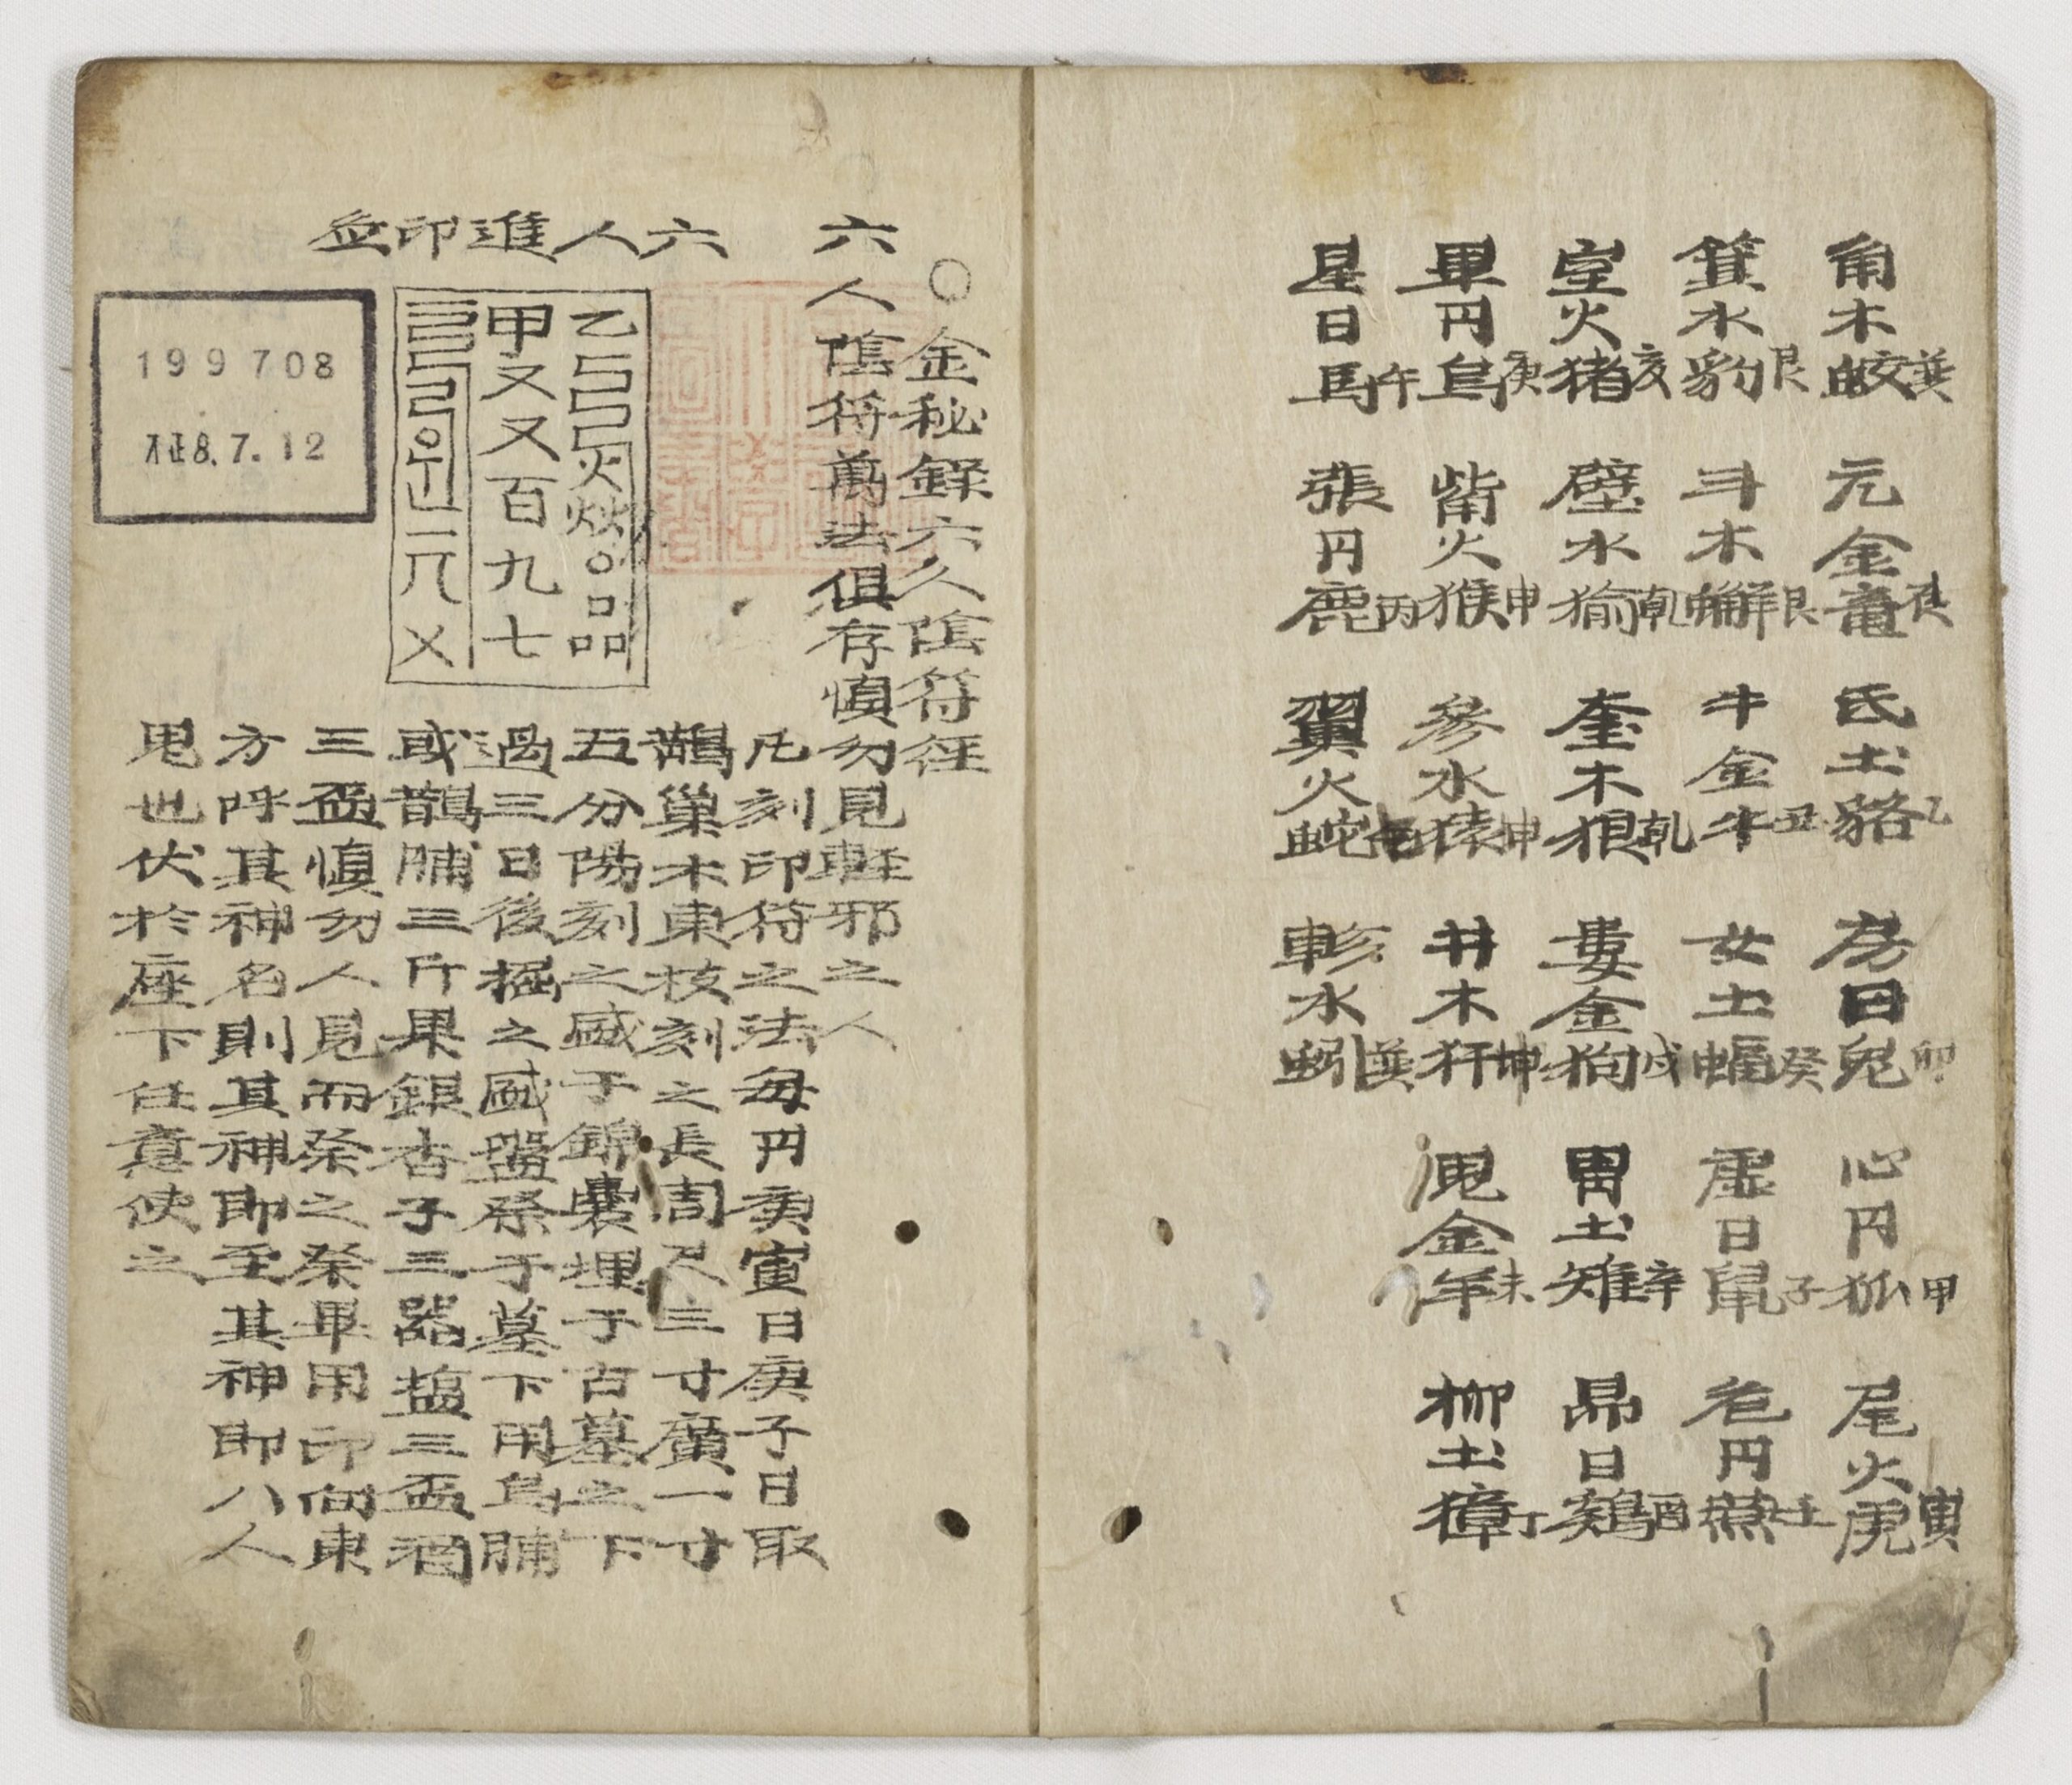 角木蛟 巽
亢金竜 辰
氐土貉 乙
房日兎 卯
心円狐 甲
尾火虎 寅
箕水豹 艮
斗木蠏 艮
牛金牛 丑
女土蝠 癸
虛日鼠 子
危円燕 壬
室火猪 亥
壁水㺄 乾
奎木狼 乾
婁金狗 戌
胃土雉 辛
昴日鷄 酉
畢円烏 庚
觜火猴 申
參水猿 申
井木犴 坤
鬼金羊 未
柳土獐 丁
星日馬 午
張円鹿 丙
翼火蛇 巳
軫水蚓 巽
○金秘録六久陰符径
六人陰符萬法俱存愼勿見輕邪之人
六人進印並
乙 火炏 品
甲又又百九七
凡刻印符之法每円庚寅日庚子日取
鵲巢木東枝刻之長周尺三寸廣一寸
五分陽刻之盛于錦囊埋于古墓之下
過三日後掘之盛盤祭于墓下用烏脯
或鵲脯三斤果銀杏子三器盤三盃酒
三盃愼勿人見而祭之祭畢用印向東
方呼其神名則其神即至其神即八人
鬼也伏於座下任意使之
199708
大正8.7.12